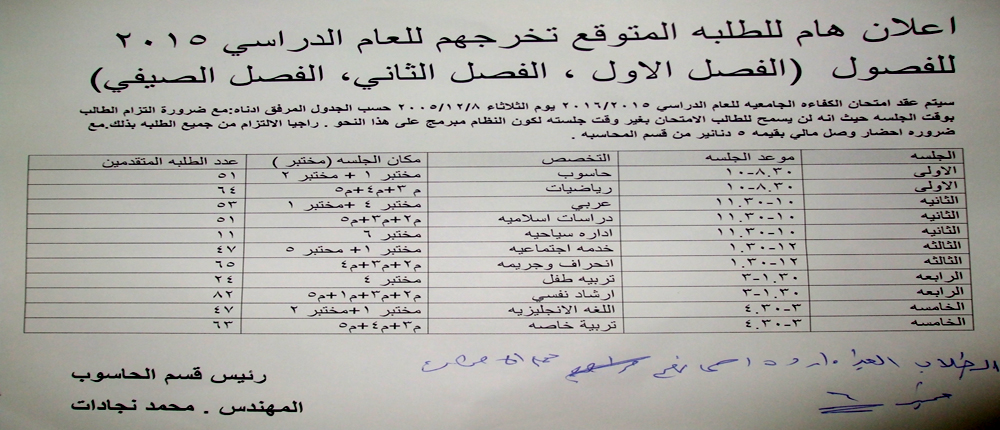 اعلان هام للطلبه المتوقع تخرجهم للعام الدراسي ٢٠١٥
للفصول (الفصل الاول ، الفصل الثاني، الفصل الصيفي)
سيتم عقد امتحان الكفاءه الجامعيه للعام الدراسي ٢٠١٦/٢٠١٥ يوم الثلاثاء ٢٠٠٥/١٢/٨ حسب الجدول المرفق ادناه:مع ضرورة التزام الطالب
بوقت الجلسه حيث انه لن يسمح للطالب الامتحان بغير وقت جلسته لكون النظام مبرمج على هذا النحو . راجيا الالتزام من جميع الطلبه بذلك.مع
ضروره احضار وصل مالي بقيمه ٥ دنانير من قسم المحاسبه .
الجلسه موعد الجلسه التخصص مكان الجلسه (مختبر ) عدد الطلبه المتقدمين
الاولى ٨.٣٠-١٠ حاسوب مختبر ١ + مختبر ٢ ٥١
الاولى ٨.٣٠-١٠ رياضيات م ٣+م٤+م٥ ٦٤
الثانيه ١٠-١١.٣٠ عربي مختبر ٤ +مختبر ١ ٥٣
الثانيه ١٠-١١.٣٠ دراسات اسلاميه م٢+م٣+م٥ ٥١
الثانيه ١٠-١١.٣٠ اداره سياحيه مختبر ٦ ١١
الثالثه ١٢-١.٣٠ خدمه اجتماعيه مختبر ١+ محتبر ٥ ٤٧
الثالثه ١٢-١.٣٠ انحراف وجريمه م٢+م٣+م٤ ٦٥
الرابعه ١.٣٠-٣ تربيه طفل مختبر ٤ ٢٤
الرابعه ١.٣٠-٣ ارشاد نفسي م٢+م٣+م١+م٥ ٨٢
الخامسه ٣-٤.٣٠ اللغه الانجليزيه مختبر ١+مختبر ٢ ٤٧
الخامسه ٣-٤.٣٠ تربية خاصه م٣+م٤+م٥ ٦٣
الطلاب
مختبر ٦
رئيس قسم الحاسوب
المهندس . محمد نجادات